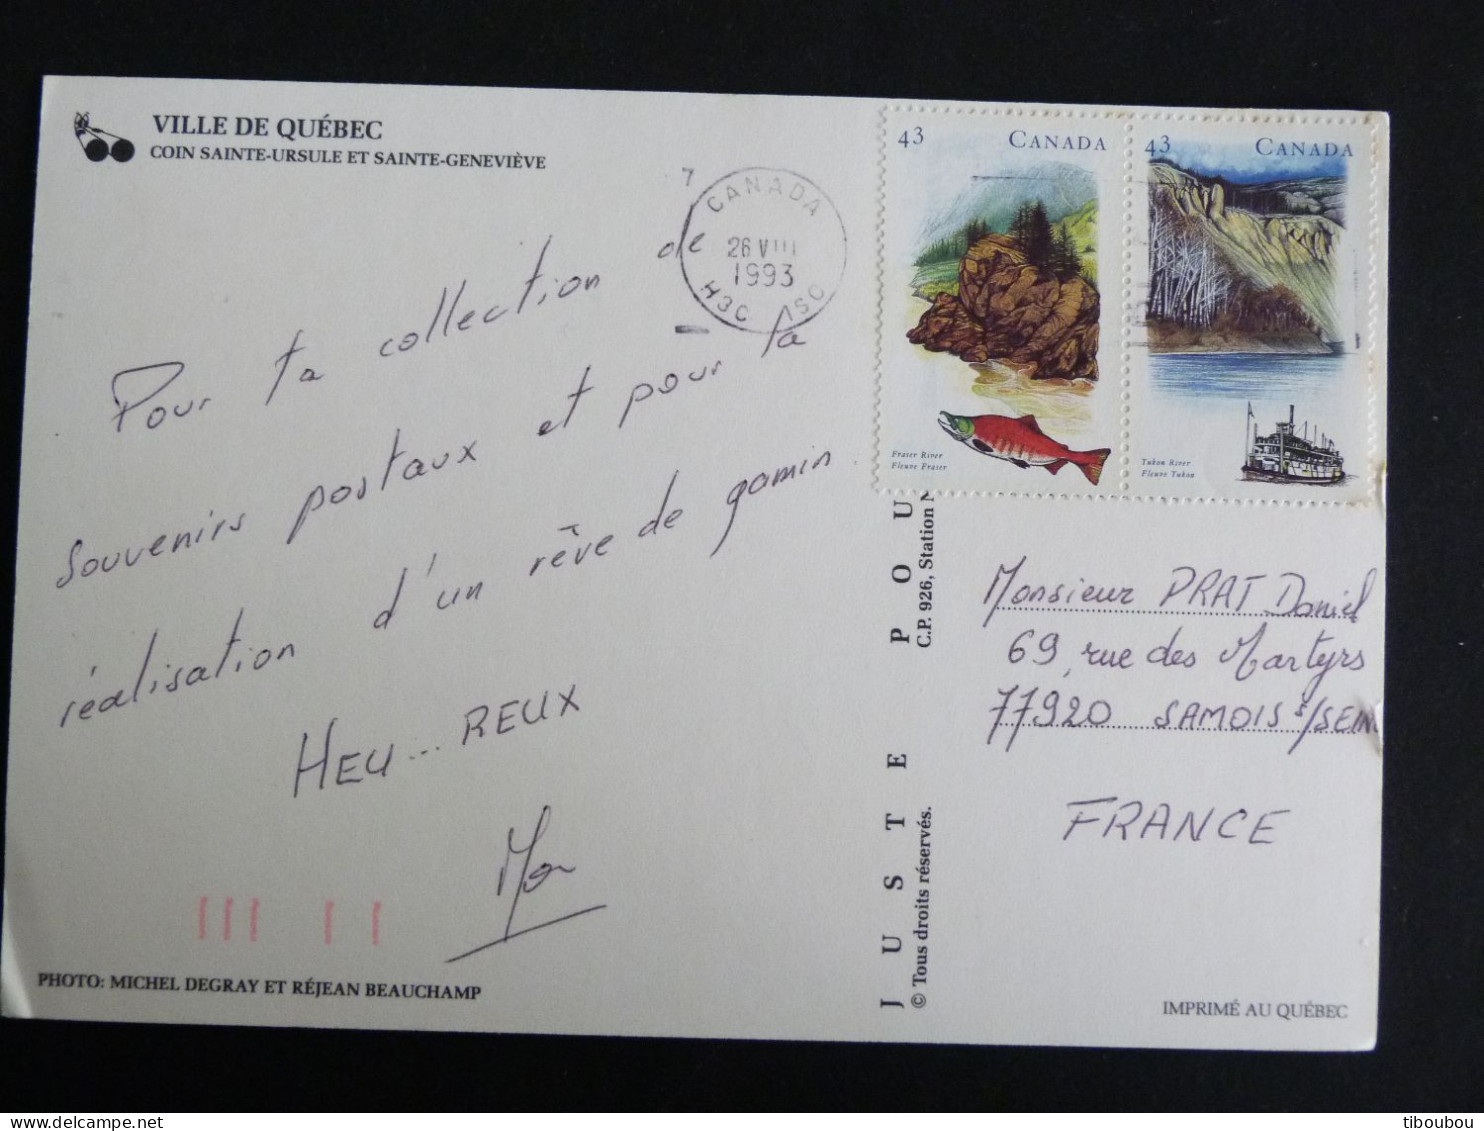 VILLE DE QUÉBEC
COIN SAINTE-URSULE ET SAINTE-GENEVIÈVE
7
CANADA
26 VIII
1993
H3C 1S0
43 CANADA
Fraser River
Fleuve Fraser
43 CANADA
Yukon River
Fleuve Yukon
Pour ta collection de
souvenirs postaux et pour la
réalisation d'un rêve de gamin
HEU... REUX
JUSTE POU
C.P. 926, Station
© Tous droits réservés.
Monsieur PRAT Daniel
69, rue des Martyrs
77920 SAMOIS S/SEINE
FRANCE
PHOTO: MICHEL DEGRAY ET RÉJEAN BEAUCHAMP
IMPRIMÉ AU QUÉBEC
tiboubou